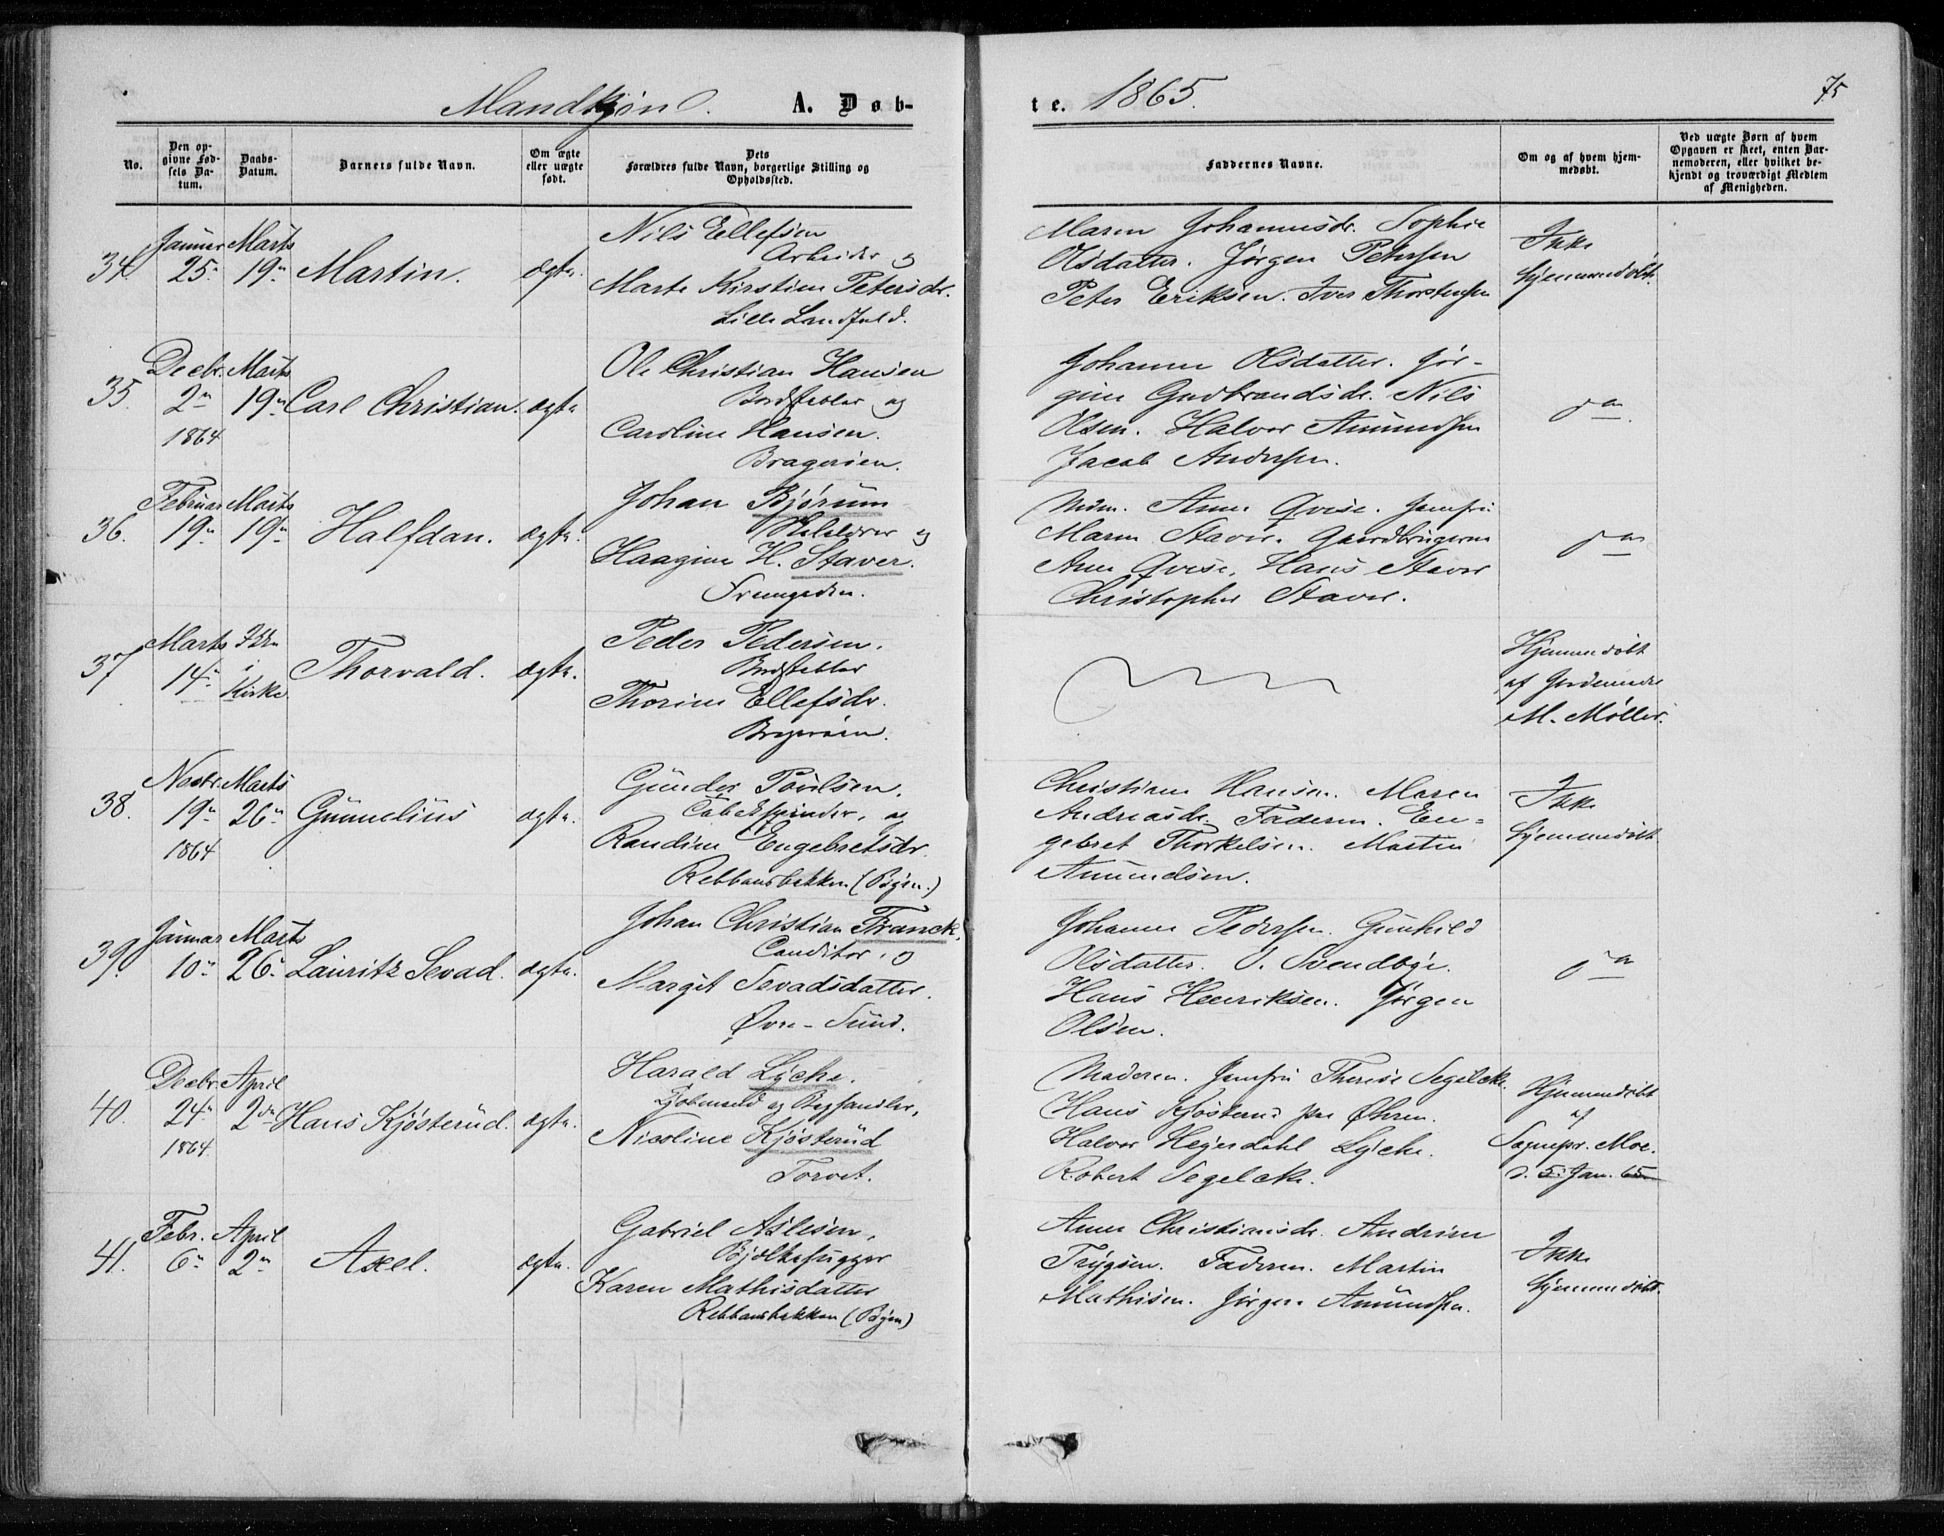 Mandkjøn. A. Døb-
te. 1865.
75
No.
Den opgivne Fødsels Datum.
Daabs-Datum.
Barnets fulde Navn.
Om ægte eller uægte født.
Dets Forældres fulde Navn, borgerlige Stilling og Opholdssted.
Faddernes Navne.
Om og af hvem hjemmedøbt.
Ved uægte Børn af hvem Opgaven er skeet, enten Barnemoderen, eller hvilket bekjendt og troværdigt Medlem af Menigheden.
34. Januar 25. Marts 19. Martin. ægte.
Nils Ellefsen
Arbeider og
Marte Kirstine Petersdr.
Lille Landfald.
Maren Johannesdr. Sophie
Olsdatter. Jørgen Petersen
Peter Eriksen. Iver Thorstensen
Ikke
hjemmedøbt.
35. Decbr. 2 1864 Marts 19 Carl Christian. ægte
Ole Christian Hansen
Bordstabler og
Caroline Hansen.
Bragerøen.
Johanne Olsdatter. Jør-
gine Gudbrandsdr. Nils
Olsen. Halvor Amundsen
Jacob Andersen.
do
36. Februar 19 Marts 19 Halfdan. ægte.
Johan Bjørum
og
Haagine H. Staver.
Anne Qvise. Jomfru
Maren Staver. Gaardbrugerne
Arne Qvise, Hans Staver
Christopher Staver.
do
37 Marts 14 Ikke
i
Kirke. Thorvald. ægte.
Peder Pedersen.
Bordstabler
Thorine Ellefsdr.
Bragerøen.
Hjemmedøbt
af Jordemoder
M. Møller.
38. Novbr. 19 1864 Marts 26 Gunnelius ægte.
Gunder Poulsen.
Tobakspinder, og
Randine Engebretsdr.
Rebbansbakken (Byen.)
Christiane Hansen. Maren
Andreasdr. Faderen. En-
gebret Thorkelsen. Martin
Amundsen.
Ikke
hjemmedøbt
39. Januar 10 Marts 26 Lauritz Sevad. ægte.
Johan Christian Franck,
Conditor, og
Margit Sevadsdatter.
Øvre-Sund.
Johanne Pedersen. Gunhild
Olsdatter. O. Svendbye.
Hans Henriksen. Jørgen
Olsen.
do
40. Decbr. 24 1864 April 2den Hans Kjøsterud. ægte.
Harald Lyche.
Kjøbmand og Boghandler,
Nicoline Kjøsterud
Torvet.
Moderen. Jomfru Therese Segelcke.
Hans Kjøsterud paa Øhren.
Halvor Heyerdahl Lyche.
Robert Segelcke.
Hjemmedøbt
af
Sognepr. Moe.
d. 5. Jan. 65
41. Febr. 6 April 2 Axel. ægte.
Gabriel Aslesen,
Bjelkehugger
Karen Mathisdatter
Rebbansbakken (Byen)
Anne Christiansdr. Andrine
Trygsen. Faderen. Martin
Mathisen. Jørgen Amundsen.
Ikke
hjemmedøbt.